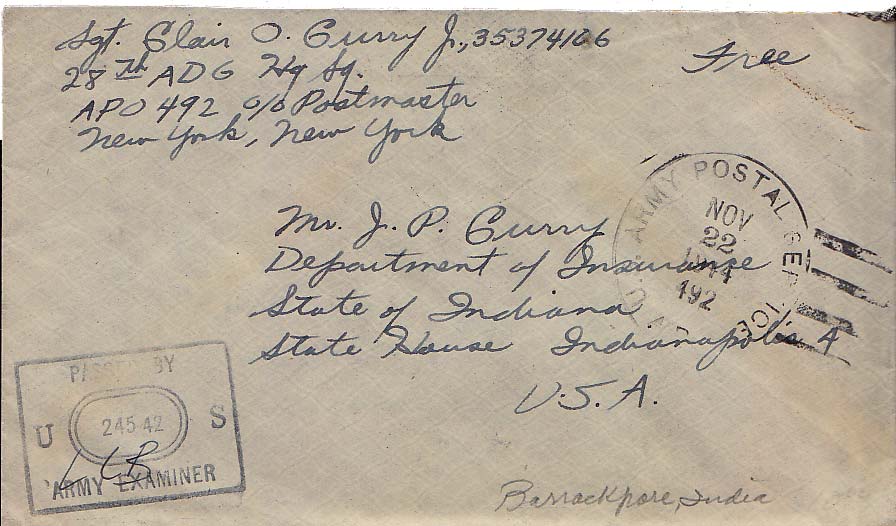 Sgt. Clair O. Curry Jr., 35374106
28th ADG Hq Sq.
APO 492 c/o Postmaster
New York, New York
Free
U.S. ARMY POSTAL SERVICE
NOV
22
1944
492
Mr. J. P. Curry
Department of Insurance
State of Indiana
State House Indianapolis 4
U.S.A.
PASSED BY
U 24542 S
ARMY EXAMINER
Barrackpore, India